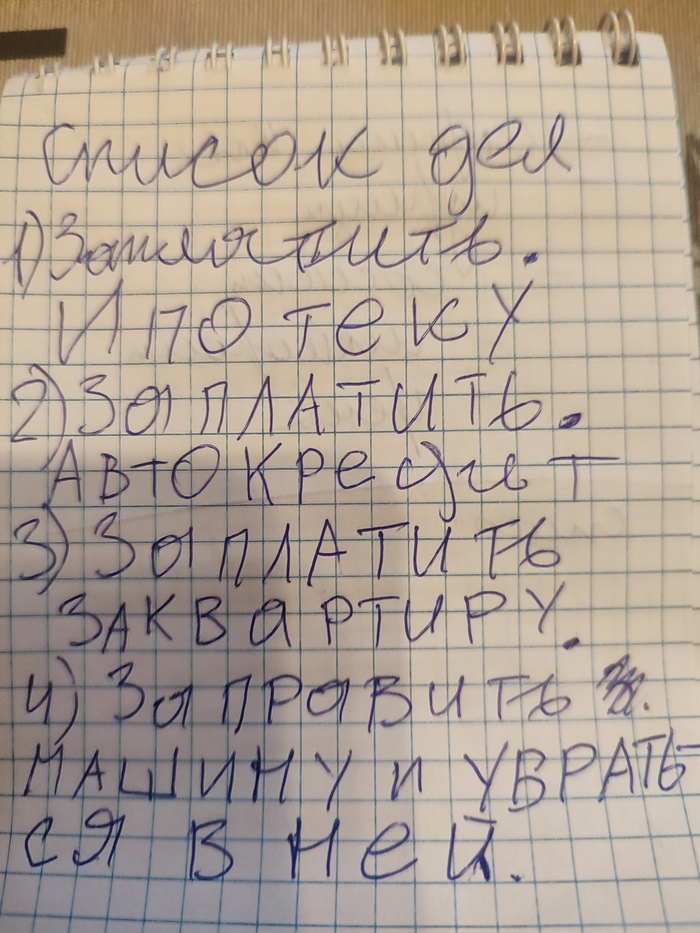 Список дел
1) Заплатить.
Ипотеку
2) Заплатить.
Автокредит
3) Заплатить
заквартиру.
4) Заправить
машину и убрать-
ся в ней.